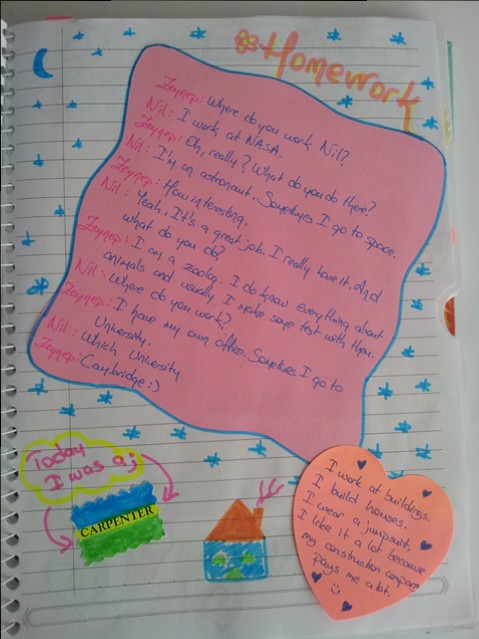 Homework
Zeynep: Where do you work Nil?
Nil: I work at NASA.
Zeynep: Oh, really? What do you do there?
Nil: I'm an astronaut. Sometimes I go to space.
Zeynep: How interesting.
Nil: Yeah. It's a great job. I really love it. And
what do you do?
Zeynep: I am a zoolog. I do know everything about
animals and usually I make some test with them.
Nil: Where do you work?
Zeynep: I have my own office. Sometimes I go to
University.
Nil: Which University
Zeynep: Caybridge :)
Today
I was a;
CARPENTER
I work at buildings.
I build houses.
I wear a jumpsuit.
I like it a lot because
my construction company
pays me a lot.